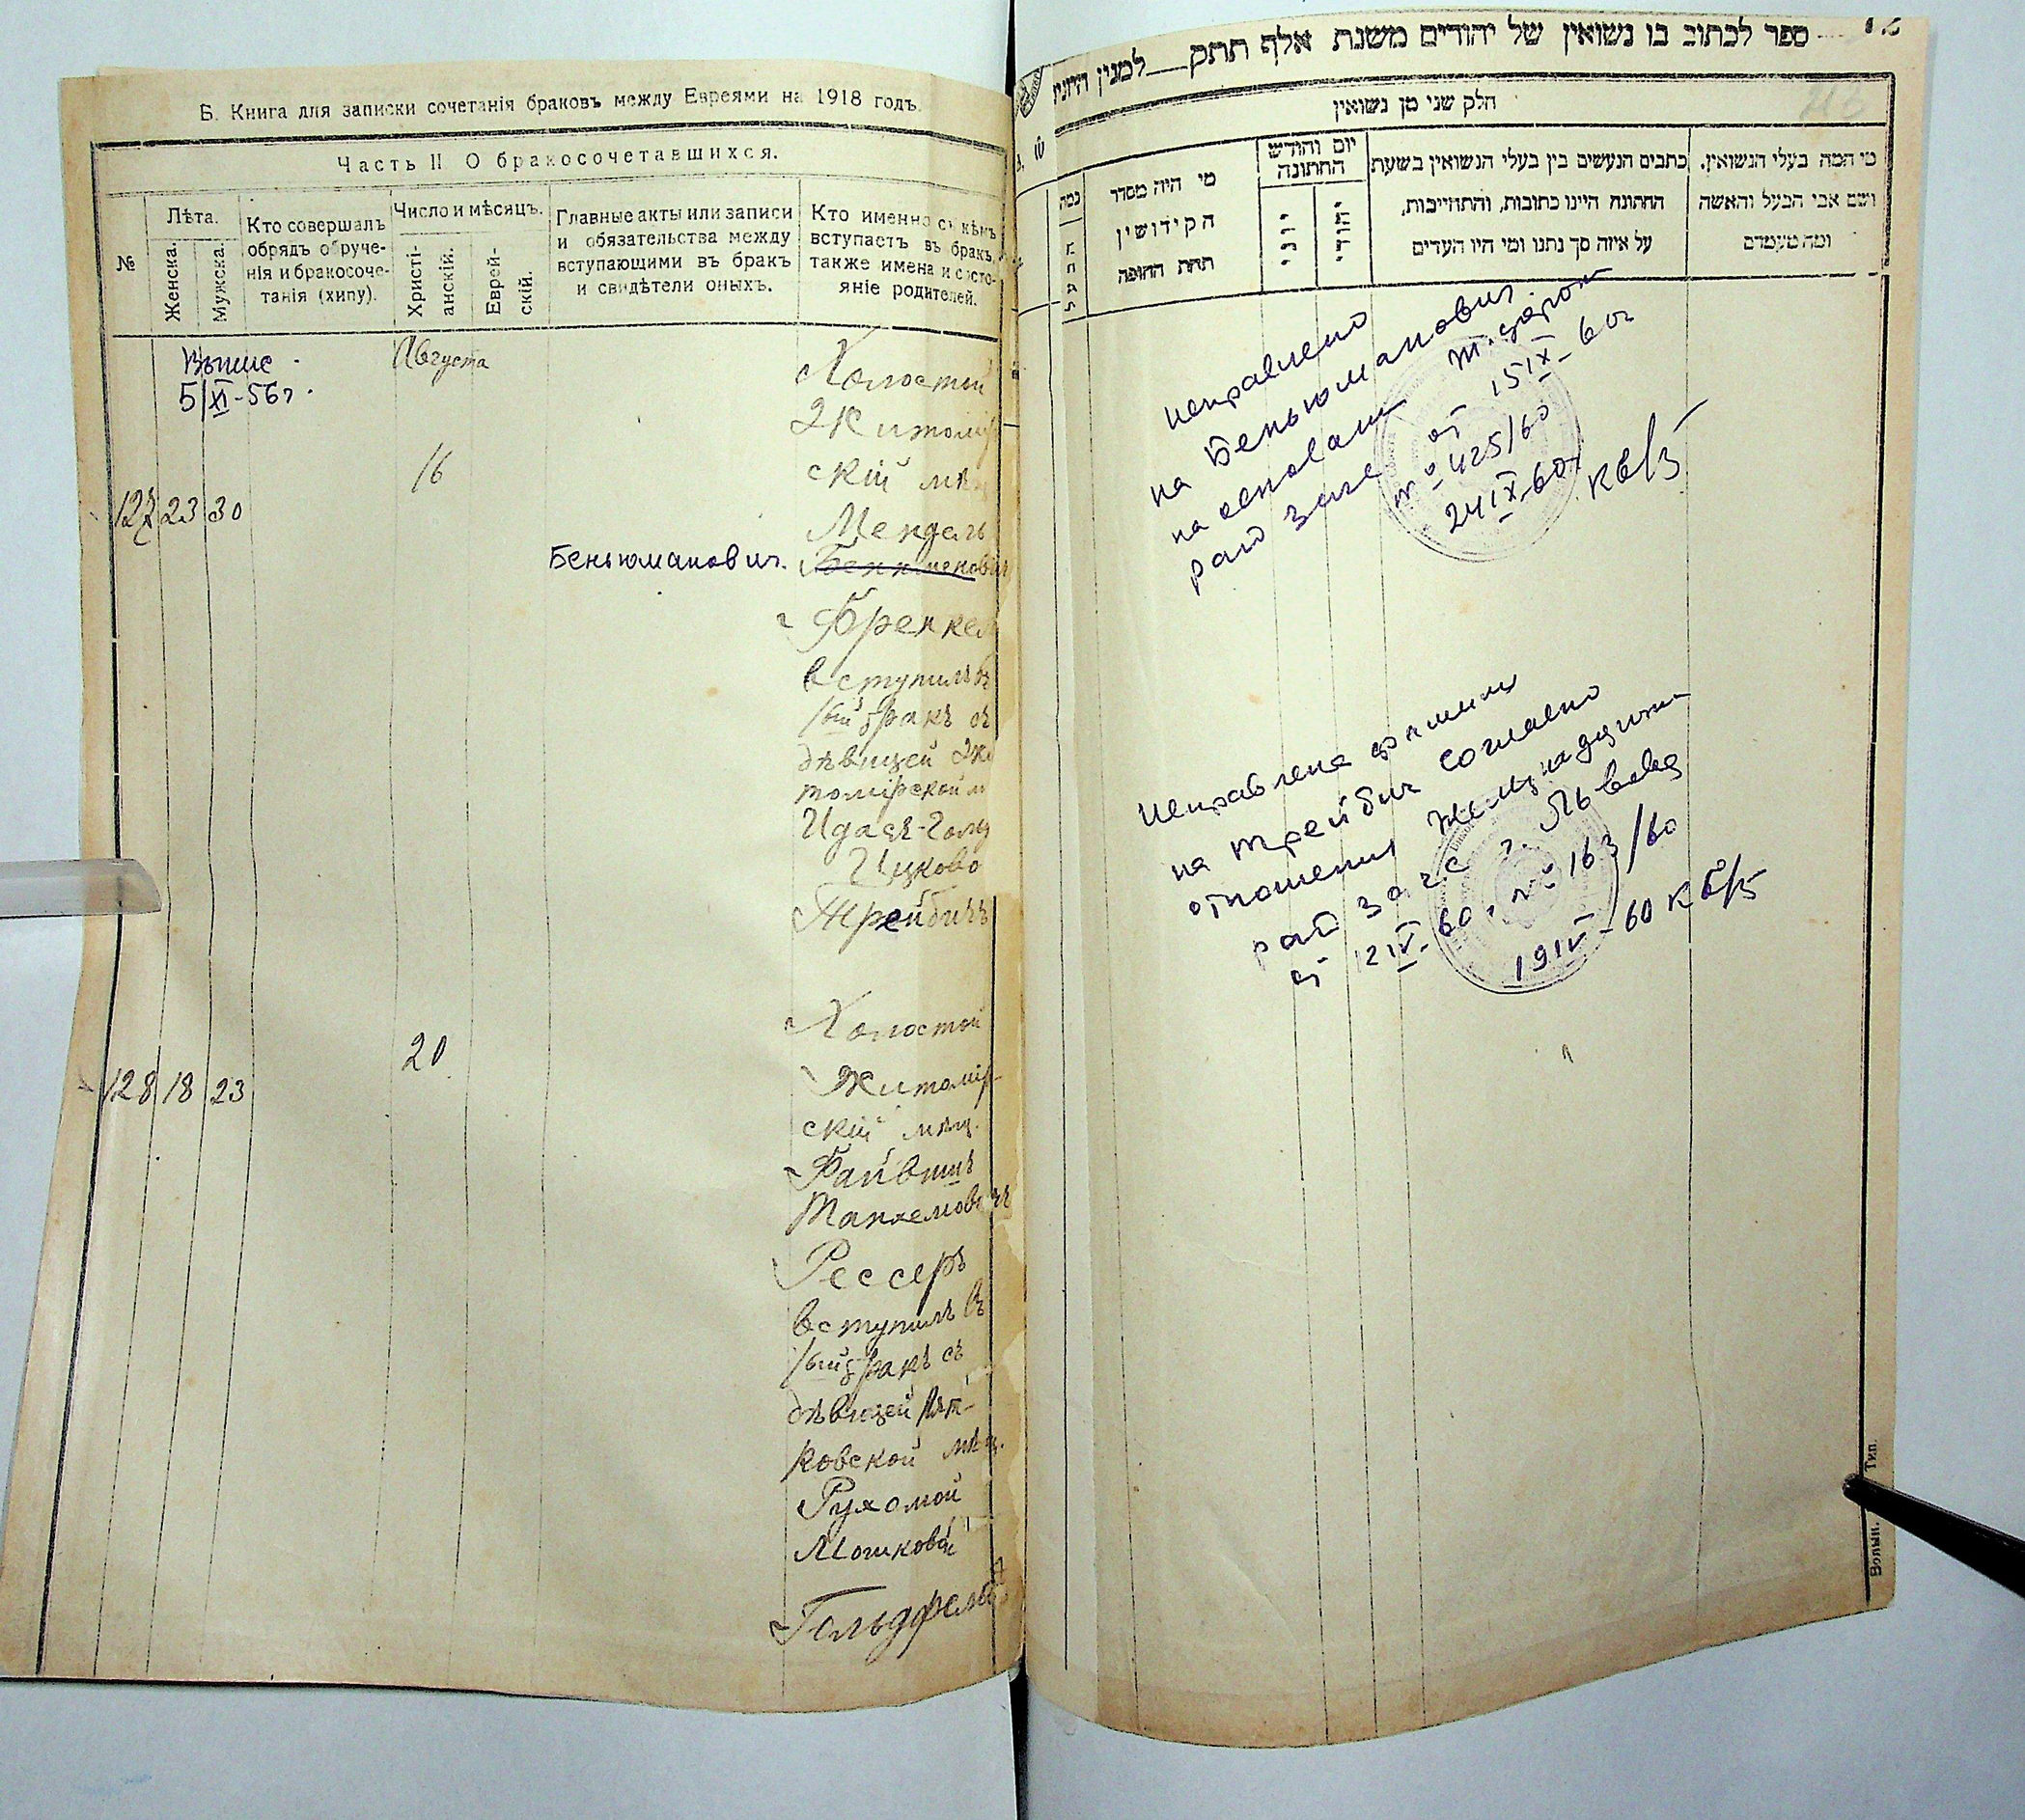 Б. Книга для записки сочетанія браковъ между Евреями на 1918 годъ.
Часть II О бракосочетавшихся.
№
Лѣта.
Женска.
Мужска.
Кто совершалъ
обрядъ обруче-
нія и бракосоче-
танія (хипу).
Число и мѣсяцъ.
Христі-
анскій.
Еврей-
скій.
Главные акты или записи
и обязательства между
вступающими въ бракъ
и свидѣтели оныхъ.
Кто именно съ кѣмъ
вступаетъ въ бракъ,
также имена и состо-
яніе родителей.
5/XI-56г.
Августа
127 23 30
16
Холостой
Житомір
скій мѣщ
Мендель
Беньюманович.
Френкель
вступилъ въ
1ый бракъ съ
дѣвицей Жи
томірской м
Ицково
Трейбичъ
128 18 23
20
Холостой
Житомір-
скій мѣщ.
Файвишъ
Рессеръ
вступилъ въ
1ый бракъ съ
дѣвицей
ковской мѣщ.
Рухомой
Мошковой
Гольдфельд
ספר לכתוב בו נשואין של יהודים משנת אלף תתק למנין
חלק שני מן נשואין
מי היה מסדר
הקידושין
תחת החופה
יום וחודש
החתונה
יוני
יהודי
כתבים הנעשים בין בעלי הנשואין בשעת
החתונה היינו כתובות, והתחייבות,
על איזה סך נתנו ומי היו העדים
מי המה בעלי הנשואין.
ושם אבי הבעל והאשה
ומה מעמדם
исправлено
на Беньюманович
на основании
рай загс от 15 IX-60г
№ 425/60
24 IX-60г
Исправлена фамилия
на Трейбич согласно
отношения Железнодорожн
рай загс г. Львова
от 12 IV-60, № 163/60
19 IV-60
Волын. Тип.